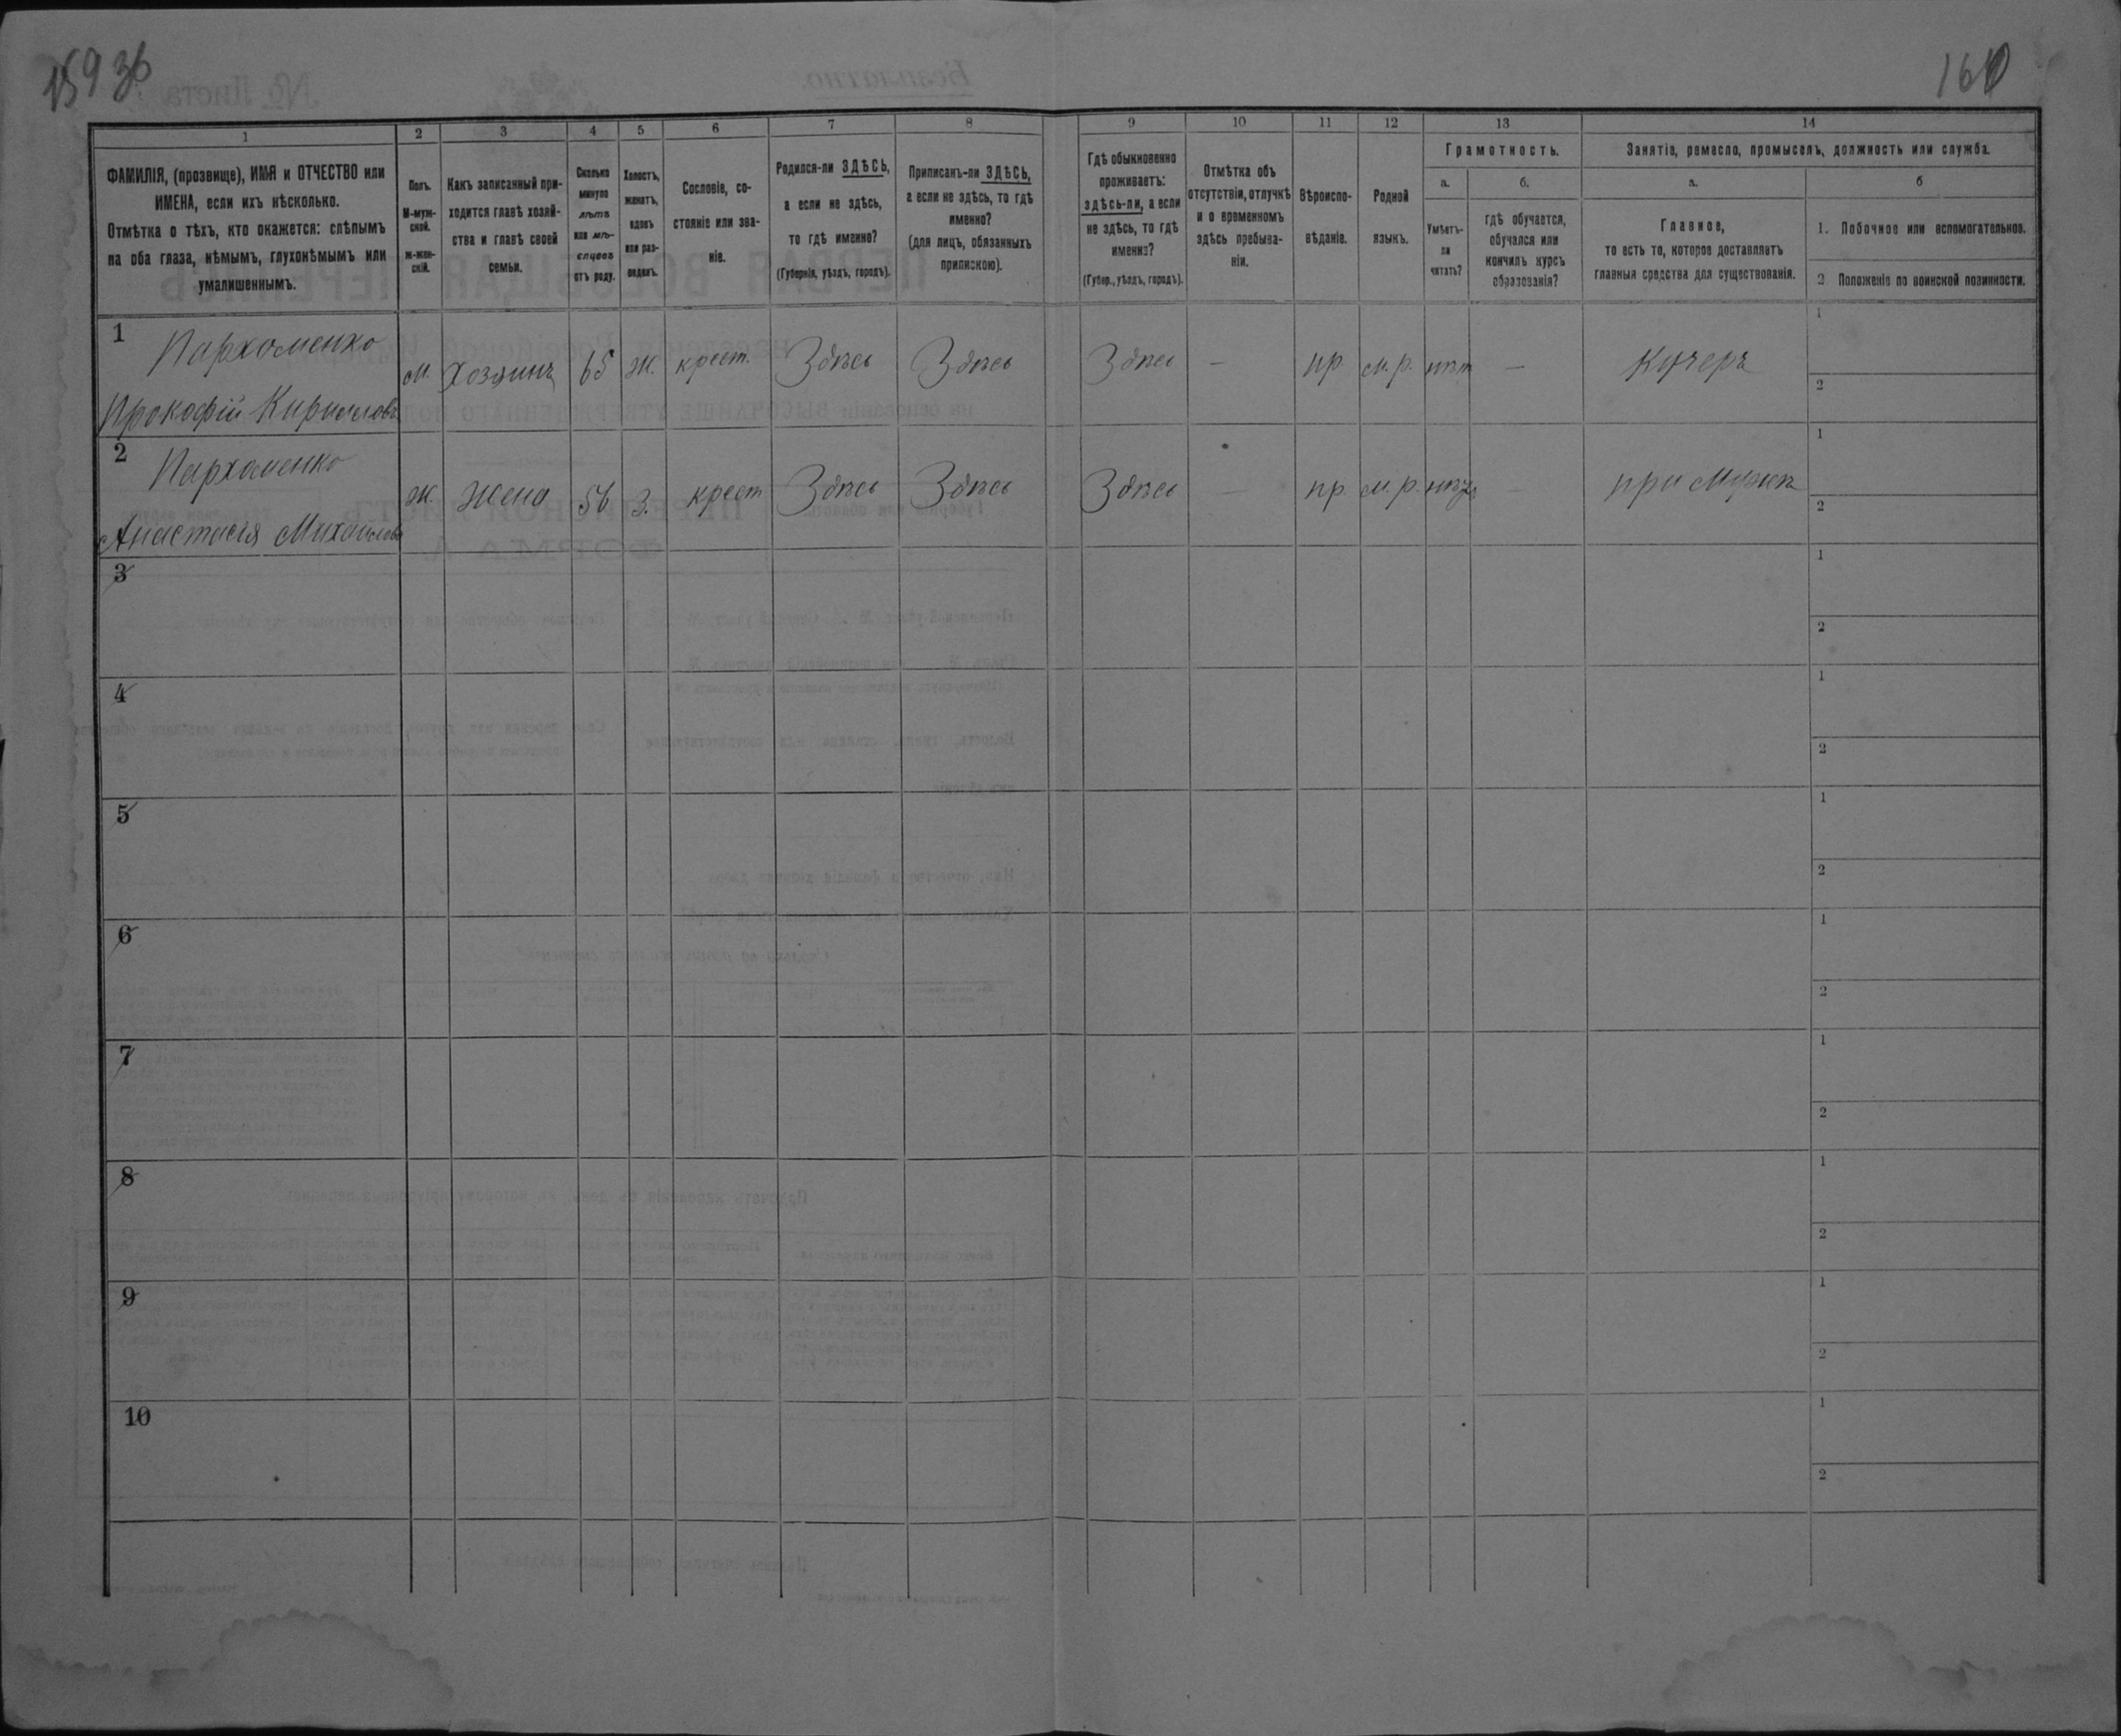 1 2 3 4 5 6 7 8 9 10 11 12 13 14
ФАМИЛІЯ, (прозвище), ИМЯ и ОТЧЕСТВО или
ИМЕНА, если ихъ нѣсколько.
Отмѣтка о тѣхъ, кто окажется: слѣпымъ
на оба глаза, нѣмымъ, глухонѣмымъ или
умалишеннымъ.
Полъ.
М-муж-
ской.
ж-жен-
скій.
Какъ записанный при-
ходится главѣ хозяй-
ства и главѣ своей
семьи.
Сколько
минуло
лѣтъ
или мѣ-
сяцевъ
отъ роду.
Холостъ,
женатъ,
вдовъ
или раз-
веденъ.
Сословіе, со-
стояніе или зва-
ніе.
Родился-ли ЗДѢСЬ,
а если не здѣсь,
то гдѣ именно?
(Губернія, уѣздъ, городъ).
Приписанъ-ли ЗДѢСЬ,
а если не здѣсь, то гдѣ
именно?
(для лицъ, обязанныхъ
припискою).
Гдѣ обыкновенно
проживаетъ:
здѣсь-ли, а если
не здѣсь, то гдѣ
именно?
(Губер., уѣздъ, городъ).
Отмѣтка объ
отсутствіи, отлучкѣ
и о временномъ
здѣсь пребыва-
ніи.
Вѣроиспо-
вѣданіе.
Родной
языкъ.
Грамотность.
а.
Умѣетъ-
ли
читать?
б.
гдѣ обучается,
обучался или
кончилъ курсъ
образованія?
Занятіе, ремесло, промыселъ, должность или служба.
а.
Главное,
то есть то, которое доставляетъ
главныя средства для существованія.
б
1. Побочное или вспомогательное.
2 Положеніе по воинской повинности.
1 Пархоменко
Прокофій Кириллов
м. Хозяинъ 65 ж. крест. Здѣсь Здѣсь Здѣсь — пр. м.р. нѣт — Кучеръ
1
2
2 Пархоменко
Анастасія Михайлова
ж. жена 56 з. крест Здѣсь Здѣсь Здѣсь — пр. м.р. нѣтъ — при мужѣ
1
2
3
1
2
4
1
2
5
1
2
6
1
2
7
1
2
8
1
2
9
1
2
10
1
2